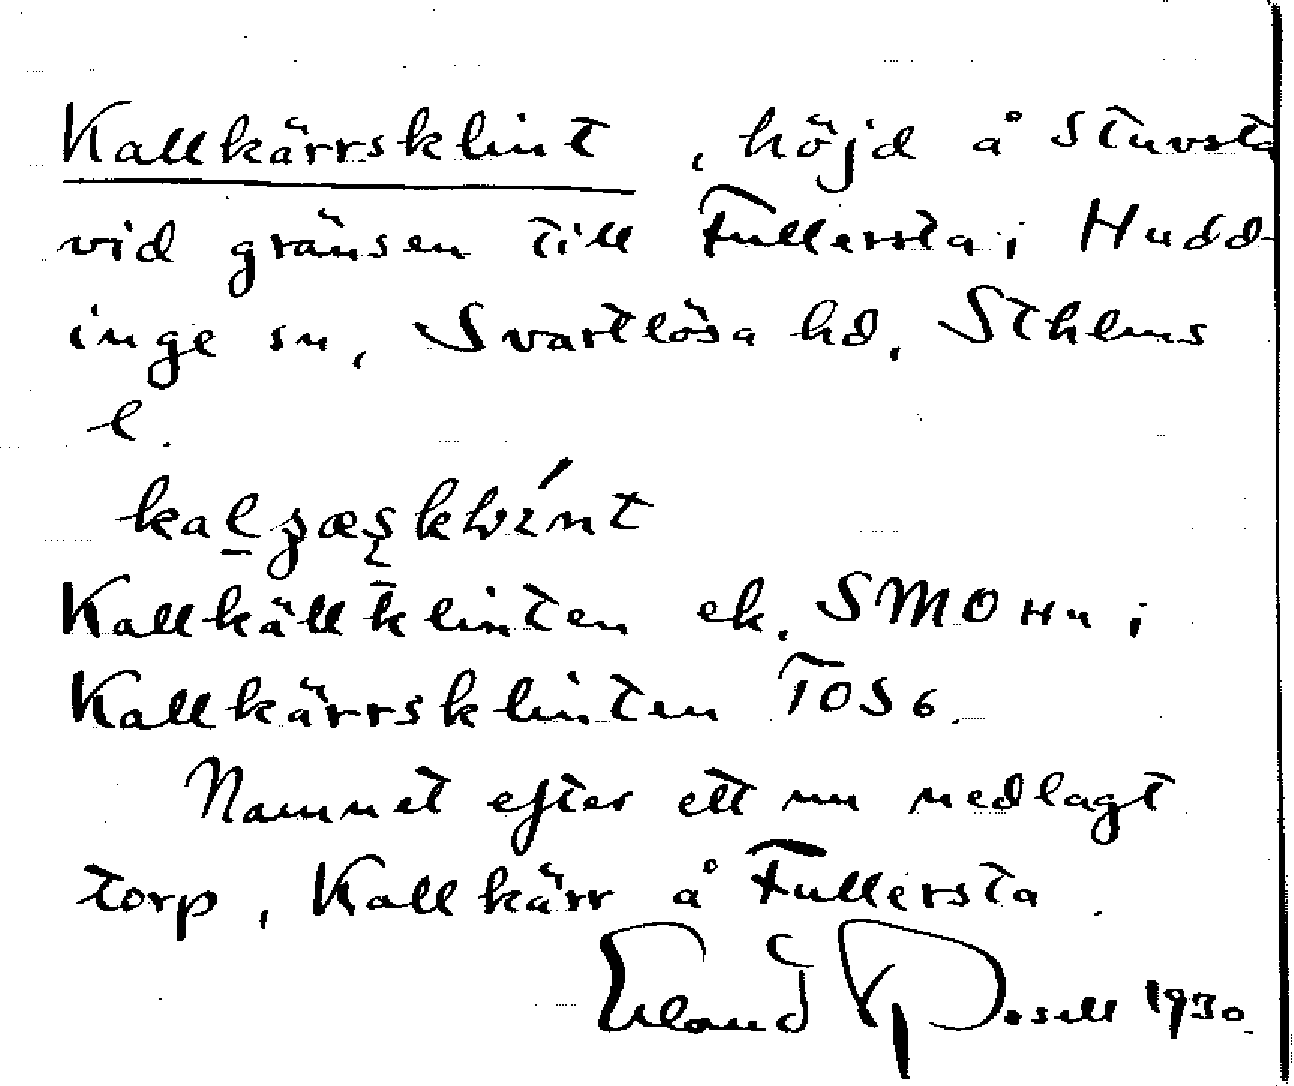 Kallkärrsklint, höjd å Stuvsta
vid gränsen till Fullersta i Hudd-
inge sn, Svartlösa hd, Sthlms
l.
Kallkällklinten ek. SMOHu i
Kallkärrsklinten TOS6.
Namnet efter ett nu nedlagt
torp, Kallkärr å Fullersta.
Erland Rosell 1930